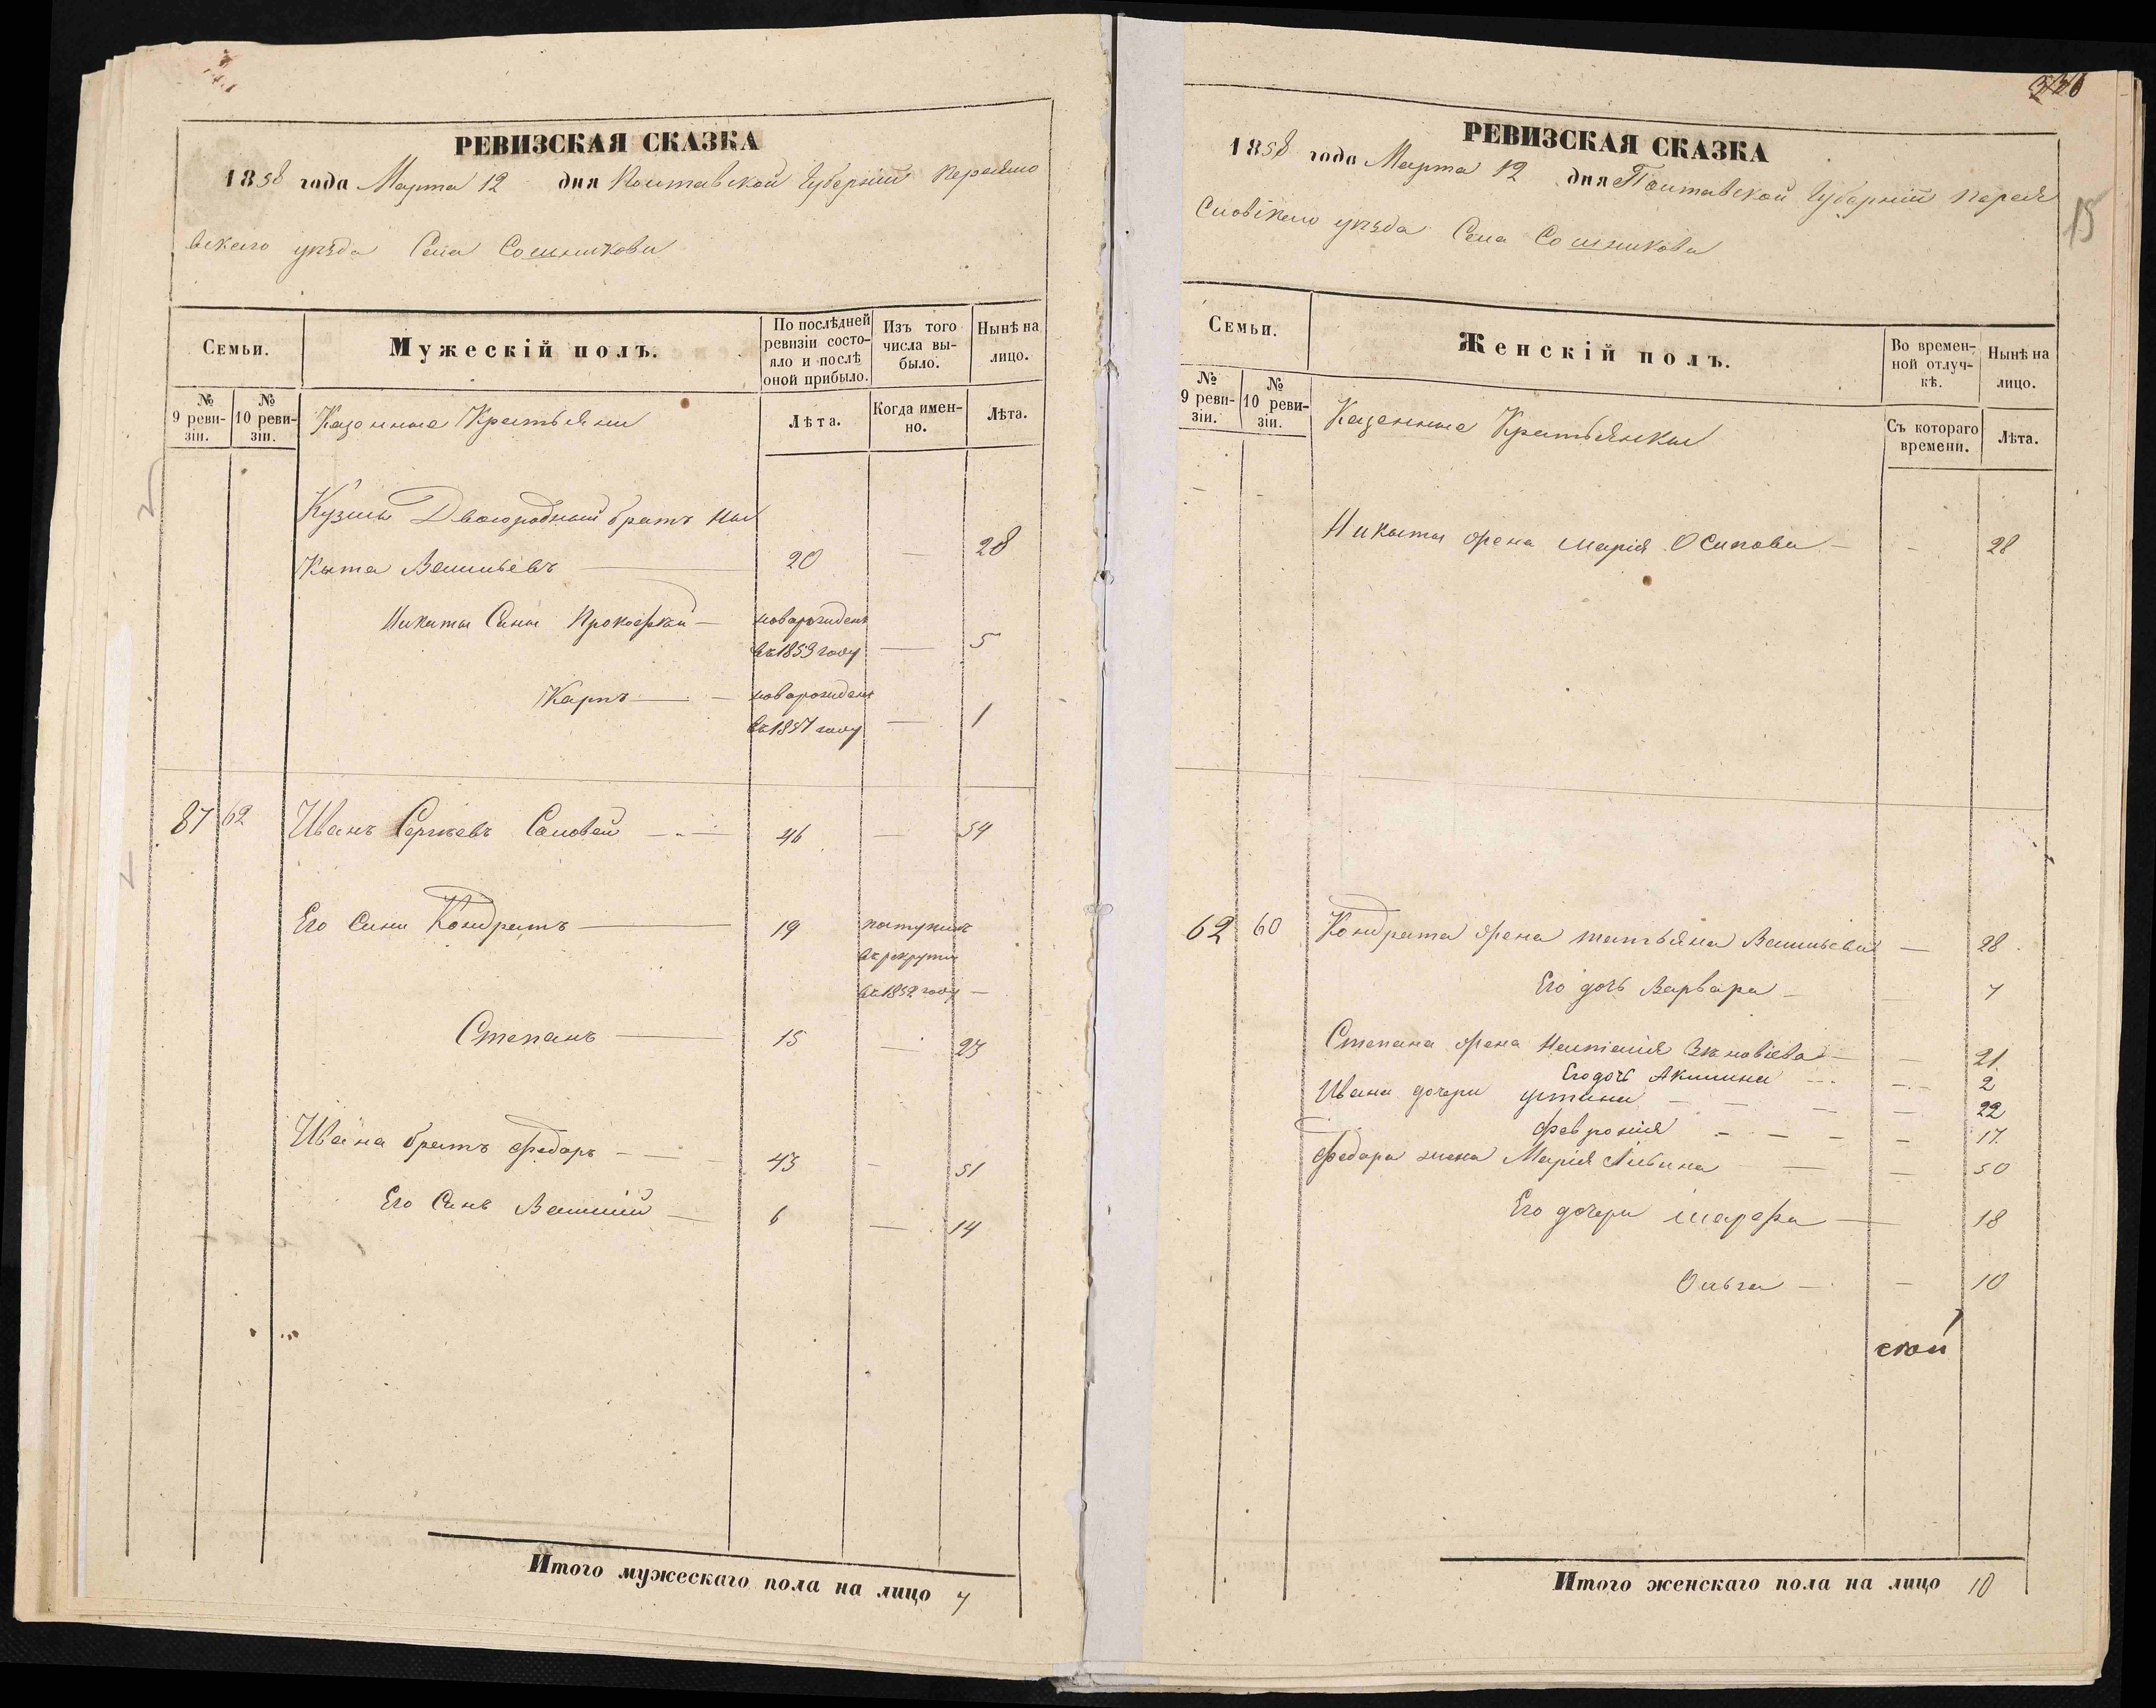 РЕВИЗСКАЯ СКАЗКА
1858 года Марта 12 дня Полтавской Губерніи Переясло
вскаго уѣзда Села Сошникова
Семьи.
Мужескій полъ.
По послѣдней ревизіи состояло и послѣ оной прибыло.
Изъ того числа выбыло.
Нынѣ на лицо.
№ 9 ревизіи.
№ 10 ревизіи.
Казенные Крестьяни
Лѣта.
Когда именно.
Лѣта.
Кузмы Двоюродный братъ Ни
Кита Васильевъ — 20 — 28
Никиты Сины Прокофій — новорожденъ
въ 1853 году — 5
Карпъ — новорожденъ
въ 1857 году — 1
87 62 Иванъ Сергѣевъ Соловей — 46 — 54
Его Сини Кондратъ — 19 поступилъ
въ рекруты
въ 1852 году —
Степанъ — 15 — 23
Ивана братъ Федоръ — 43 — 51
Его Синъ Василій — 6 — 14
Итого мужескаго пола на лицо 7
336
15
РЕВИЗСКАЯ СКАЗКА
1858 года Марта 12 дня Полтавской Губерніи Перея
словскаго уѣзда Села Сошникова
Семьи.
Женскій полъ.
Во временной отлучкѣ.
Нынѣ на лицо.
№ 9 ревизіи.
№ 10 ревизіи.
Казенные Крестьянки
Съ котораго времени.
Лѣта.
- - Никиты жена Марія Осипова — - 28
62 60 Кондрата жена Татьяна Васильева — 28
Его дочь Варвара — 7
Степана жена Наталія Зѣновіева — — 21
Его дочь Акилина — 2
Ивана дочери Устина — — 22
Февронія — — 17
Федора жена Марія Савина — — 50
Его дочери Марфа — 18
Ольга — — 10
ской
Итого женскаго пола на лицо 10